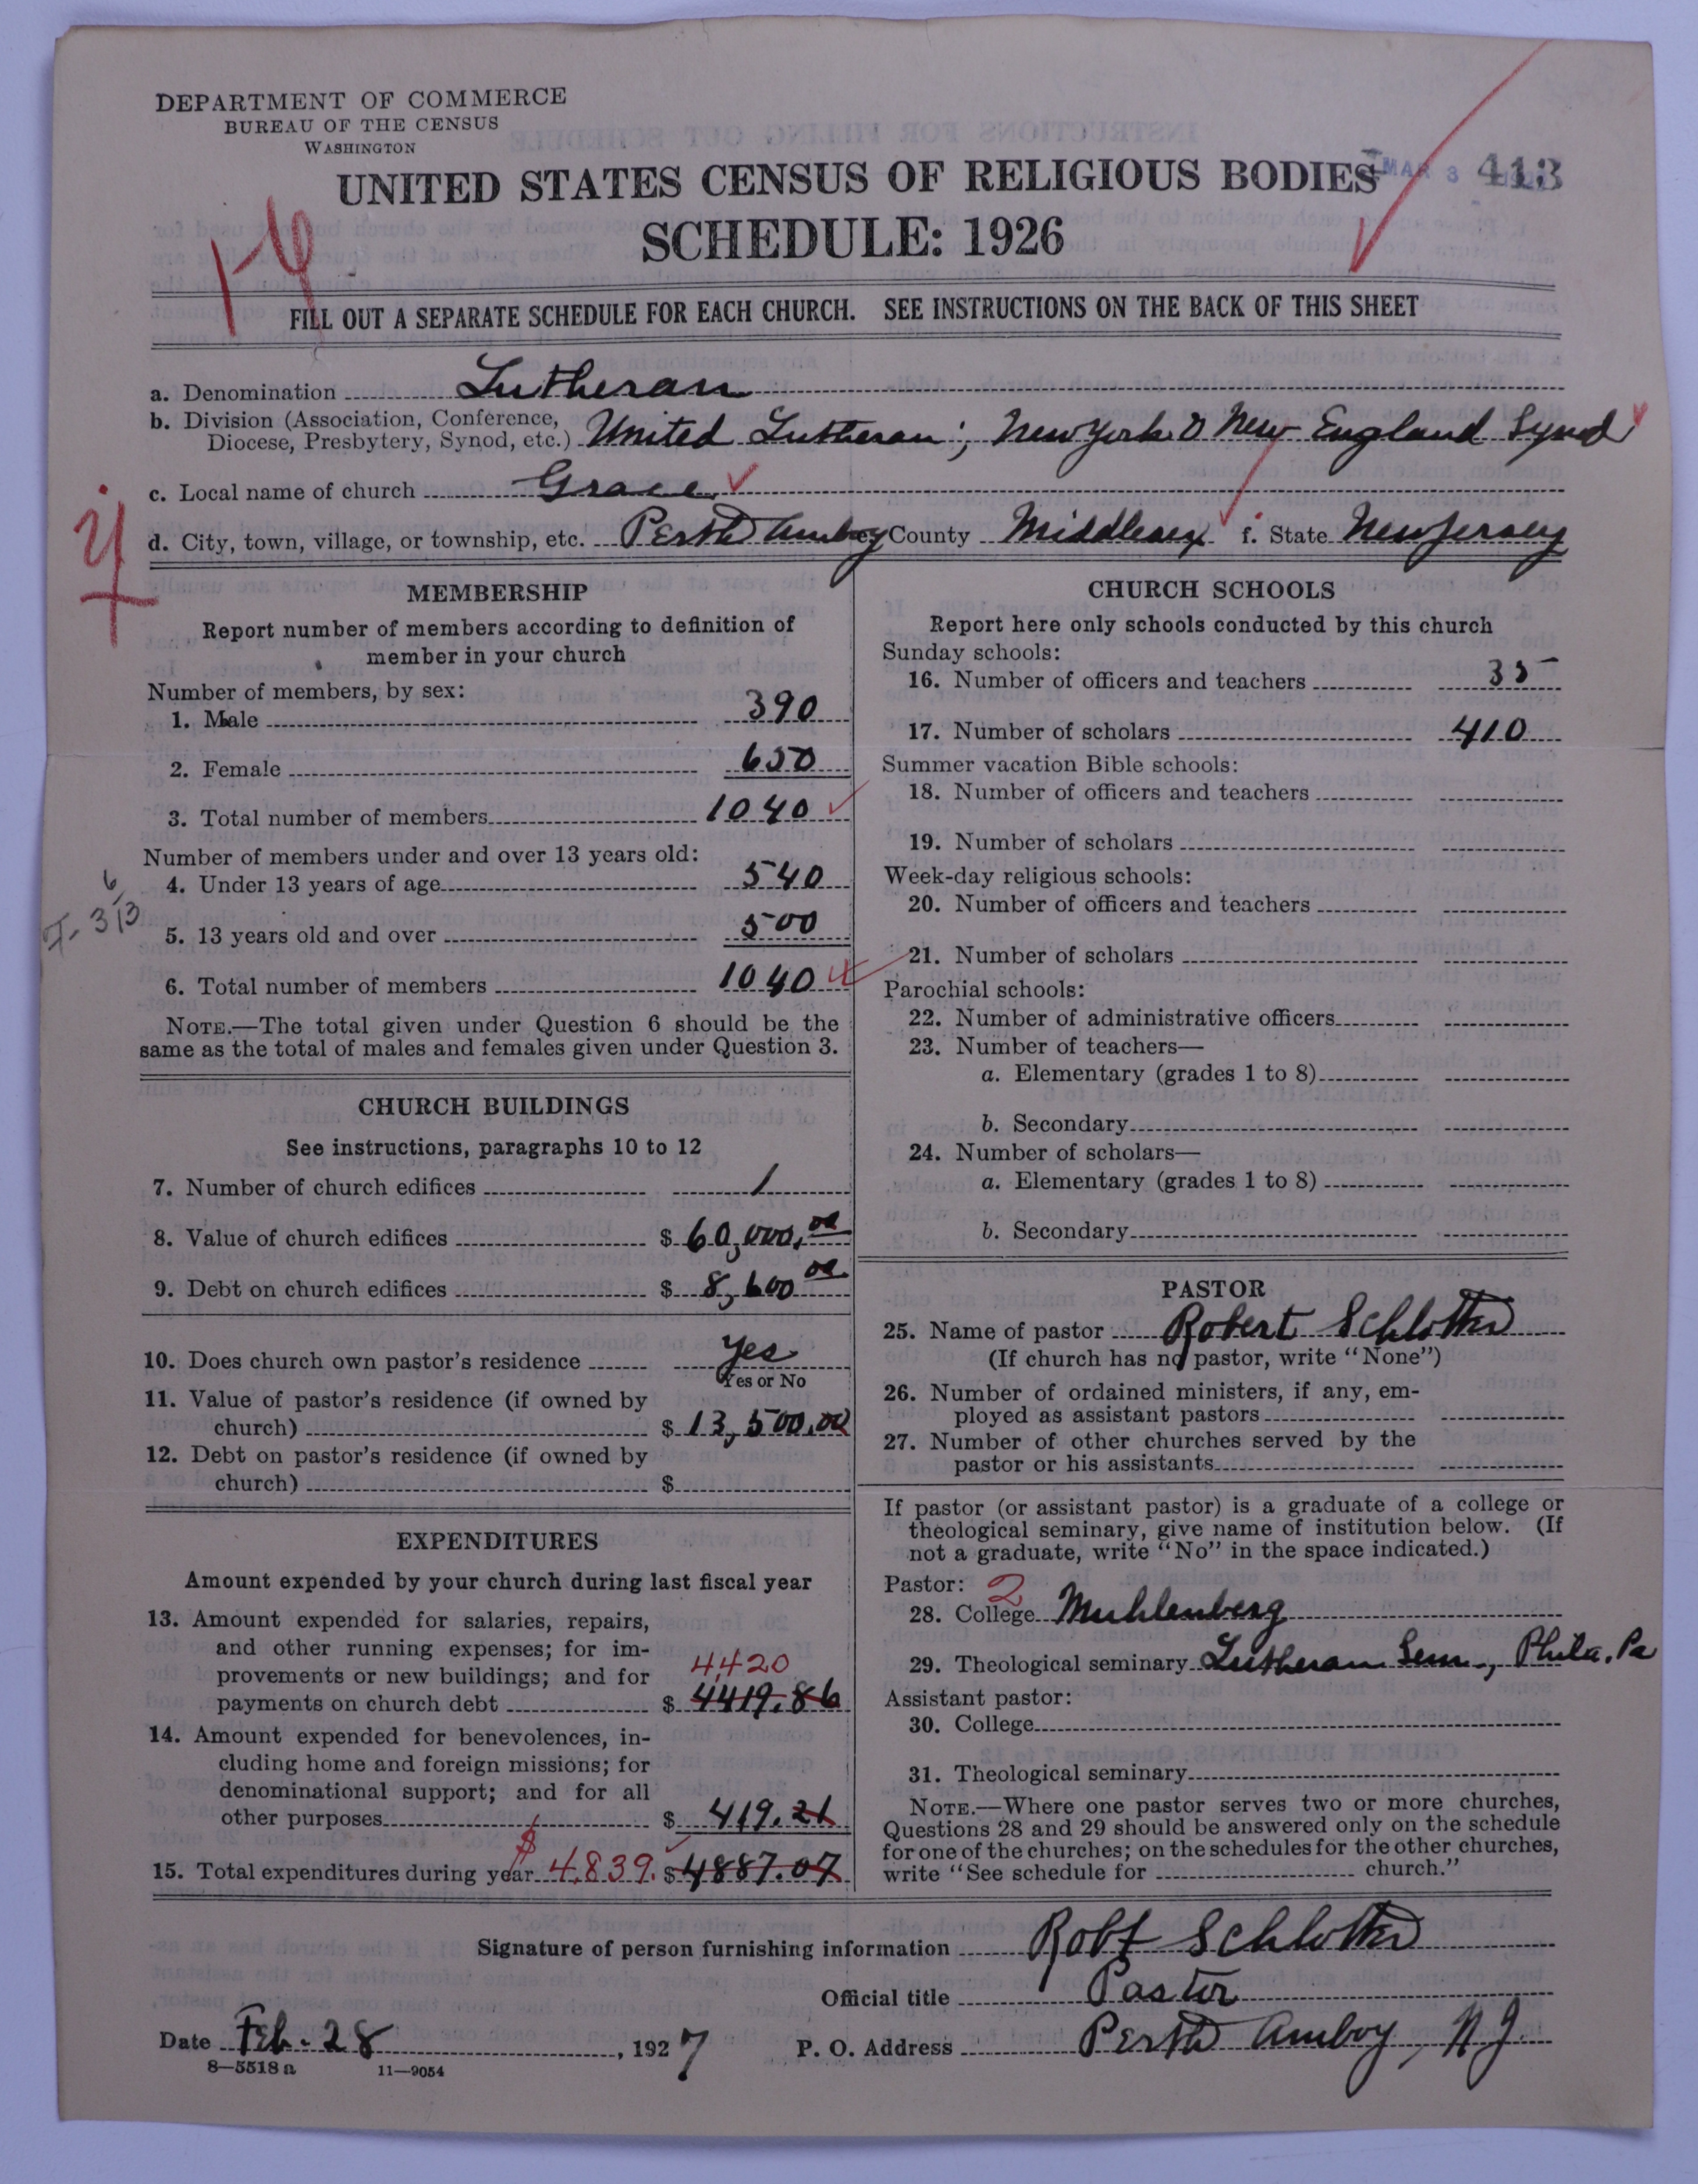 DEPARTMENT OF COMMERCE
BUREAU OF THE CENSUS
WASHINGTON
UNITED STATES CENSUS OF RELIGIOUS BODIES
MAR 3 413
SCHEDULE: 1926
FILL OUT A SEPARATE SCHEDULE FOR EACH CHURCH. SEE INSTRUCTIONS ON THE BACK OF THIS SHEET
a. Denomination Lutheran
b. Division (Association, Conference,
Diocese, Presbytery, Synod, etc.) United Lutheran; New York & New England Synod
c. Local name of church Grace
d. City, town, village, or township, etc. Perth Amboy County Middlesex f. State New Jersey
MEMBERSHIP
Report number of members according to definition of
member in your church
Number of members, by sex:
1. Male 390
2. Female 650
3. Total number of members 1040
Number of members under and over 13 years old:
4. Under 13 years of age 540
5. 13 years old and over 500
6. Total number of members 1040
NOTE.—The total given under Question 6 should be the
same as the total of males and females given under Question 3.
CHURCH BUILDINGS
See instructions, paragraphs 10 to 12
7. Number of church edifices 1
8. Value of church edifices $ 60,000.00
9. Debt on church edifices $ 8,600 00
10. Does church own pastor's residence Yes
Yes or No
11. Value of pastor's residence (if owned by
church) $ 13,500.00
12. Debt on pastor's residence (if owned by
church) $
EXPENDITURES
Amount expended by your church during last fiscal year
13. Amount expended for salaries, repairs,
and other running expenses; for im-
provements or new buildings; and for 4420
payments on church debt $ 4419.86
14. Amount expended for benevolences, in-
cluding home and foreign missions; for
denominational support; and for all
other purposes $ 419.21
15. Total expenditures during year $ 4,839. $ 4887.07
CHURCH SCHOOLS
Report here only schools conducted by this church
Sunday schools:
16. Number of officers and teachers 35
17. Number of scholars 410
Summer vacation Bible schools:
18. Number of officers and teachers
19. Number of scholars
Week-day religious schools:
20. Number of officers and teachers
21. Number of scholars
Parochial schools:
22. Number of administrative officers
23. Number of teachers—
a. Elementary (grades 1 to 8)
b. Secondary
24. Number of scholars—
a. Elementary (grades 1 to 8)
b. Secondary
PASTOR
25. Name of pastor Robert Schlotter
(If church has no pastor, write "None")
26. Number of ordained ministers, if any, em-
ployed as assistant pastors
27. Number of other churches served by the
pastor or his assistants
If pastor (or assistant pastor) is a graduate of a college or
theological seminary, give name of institution below. (If
not a graduate, write "No" in the space indicated.)
Pastor: 2
28. College Muhlenberg
29. Theological seminary Lutheran Sem., Phila. Pa
Assistant pastor:
30. College
31. Theological seminary
NOTE.—Where one pastor serves two or more churches,
Questions 28 and 29 should be answered only on the schedule
for one of the churches; on the schedules for the other churches,
write "See schedule for church."
Signature of person furnishing information Robt Schlotter
Official title Pastor
Date Feb. 28, 1927 P. O. Address Perth Amboy, N J.
8—5518 a 11—9054